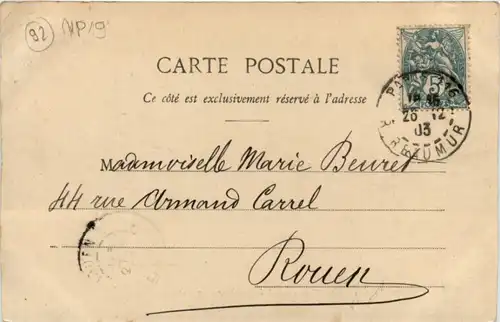 92 NP/9
CARTE POSTALE
Ce côté est exclusivement réservé à l'adresse
5
PARIS
26 12
03
R. RÉAUMUR
Mademoiselle Marie Beuret
44 rue Armand Carrel
Rouen